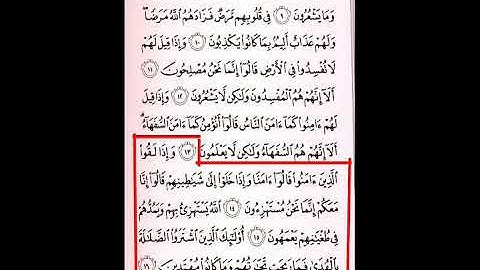 وَمَا يَشْعُرُونَ ٩ فِي قُلُوبِهِم مَّرَضٌ فَزَادَهُمُ اللَّهُ مَرَضًا ۖ
وَلَهُمْ عَذَابٌ أَلِيمٌ بِمَا كَانُوا يَكْذِبُونَ ١٠ وَإِذَا قِيلَ لَهُمْ
لَا تُفْسِدُوا فِي الْأَرْضِ قَالُوا إِنَّمَا نَحْنُ مُصْلِحُونَ ١١
أَلَا إِنَّهُمْ هُمُ الْمُفْسِدُونَ وَلَٰكِن لَّا يَشْعُرُونَ ١٢ وَإِذَا قِيلَ
لَهُمْ ءَامِنُوا كَمَا ءَامَنَ النَّاسُ قَالُوا أَنُؤْمِنُ كَمَا ءَامَنَ السُّفَهَاءُ ۗ
أَلَا إِنَّهُمْ هُمُ السُّفَهَاءُ وَلَٰكِن لَّا يَعْلَمُونَ ١٣ وَإِذَا لَقُوا
الَّذِينَ ءَامَنُوا قَالُوا ءَامَنَّا وَإِذَا خَلَوْا إِلَىٰ شَيَاطِينِهِمْ قَالُوا إِنَّا
مَعَكُمْ إِنَّمَا نَحْنُ مُسْتَهْزِءُونَ ١٤ اللَّهُ يَسْتَهْزِئُ بِهِمْ وَيَمُدُّهُمْ
فِي طُغْيَانِهِمْ يَعْمَهُونَ ١٥ أُولَٰئِكَ الَّذِينَ اشْتَرَوُا الضَّلَالَةَ
بِالْهُدَىٰ فَمَا رَبِحَت تِّجَارَتُهُمْ وَمَا كَانُوا مُهْتَدِينَ ١٦